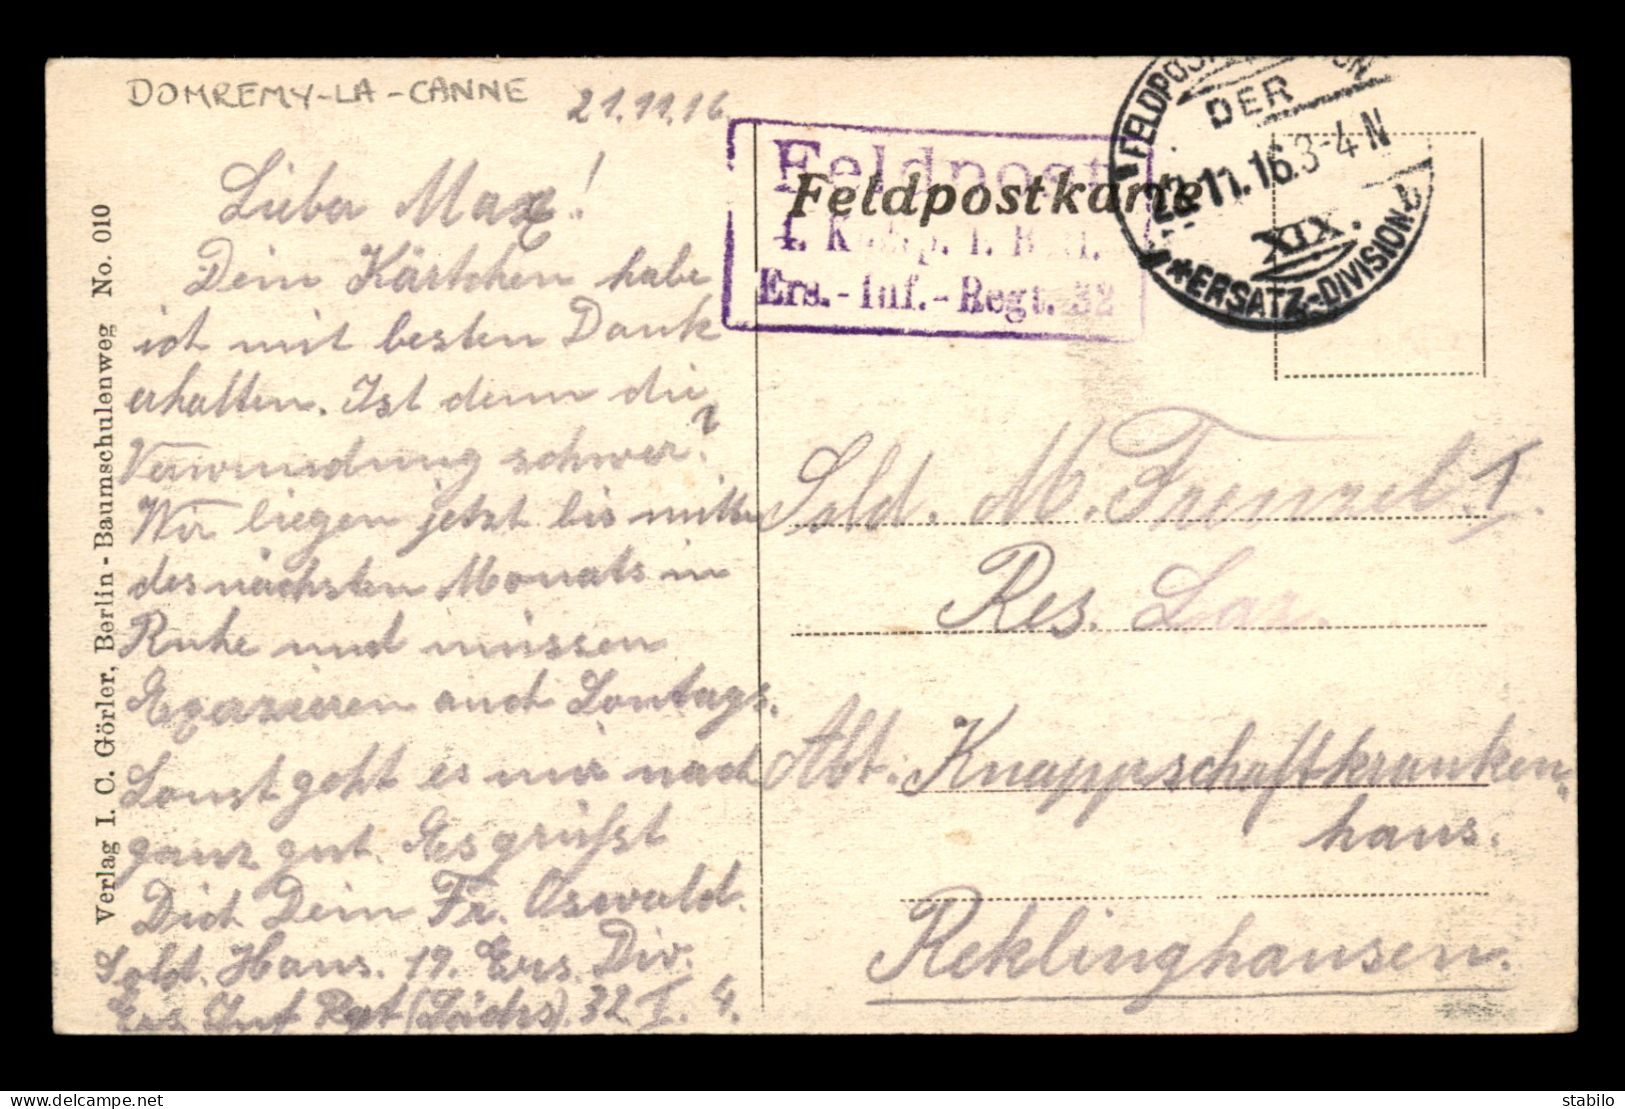 DOMREMY-LA-CANNE
21.11.16
Lieber Max!
Dein Kärtchen habe
ich mit besten Dank
erhalten. Ist denn die
Verwundung schwer?
Wir liegen jetzt bis mitte
des nächsten Monats in
Ruhe und müssen
Exerzieren auch Sontags.
Sonst geht es mir noch
ganz gut. Es grüsst
Dich Dein Fr. Oswald.
Sold. Hans. 19. Ers. Div.
Ers. Inf Rgt (Sächs). 32 I. 4.
Verlag I. C. Görler, Berlin - Baumschulenweg No. 010
Feldpost
4. Komp. I. Batl.
Ers.-Inf.-Regt. 32
Feldpostkarte
FELDPOSTEXPEDITION
DER
22.11.16.3-4 N
XIX.
*ERSATZ-DIVISION
Sold. M. Frenzel. I.
Res. Laz.
Abt. Knappschaftkranken-
haus.
Reklinghausen.
delcampe.net
stabilo